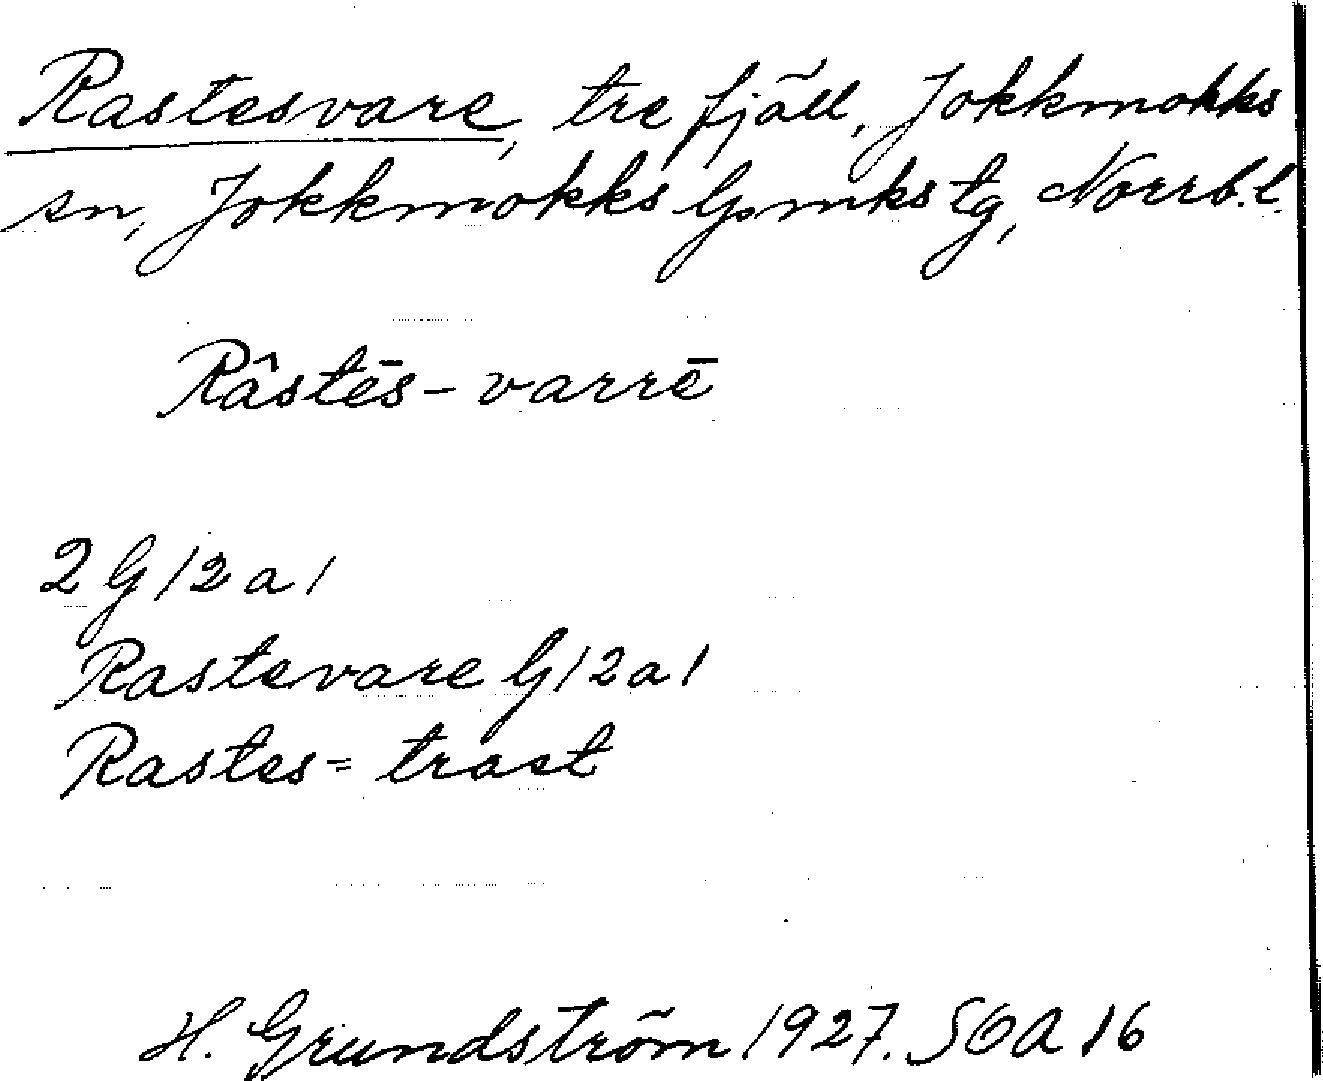 Rastesvare, tre fjäll, Jokkmokks
sn, Jokkmokks lpmks tg, Norrb.l.
Râstēs-varrē
2 G 12 a 1
Rastevare G 12 a 1
Rastes = trast
H. Grundström 1927. SOA 16